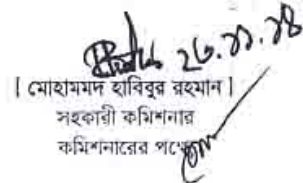 ২৬.১১.১৪
[ মোহাম্মদ হাবিবুর রহমান ]
সহকারী কমিশনার
কমিশনারের পক্ষে